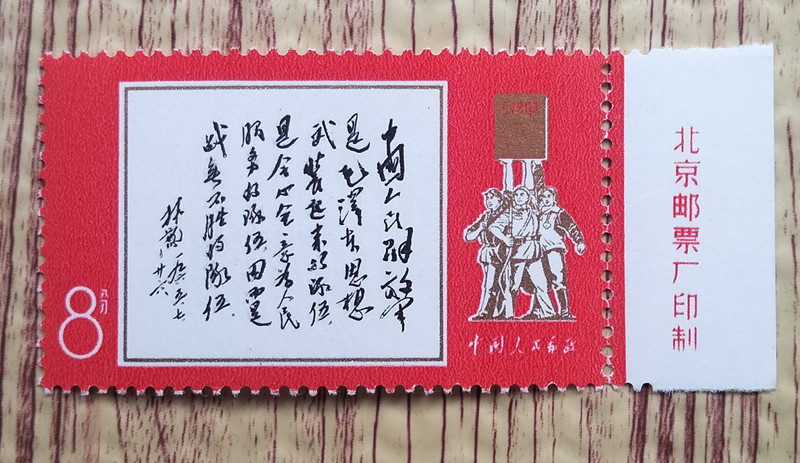 中國人民解放軍
是毛澤东思想
武裝起来的隊伍，
是全心全意为人民
服务的隊伍，因而是
战无不胜的隊伍。
林彪 一九六五、七、
廿六
8分
中国人民邮政
北京邮票厂印制